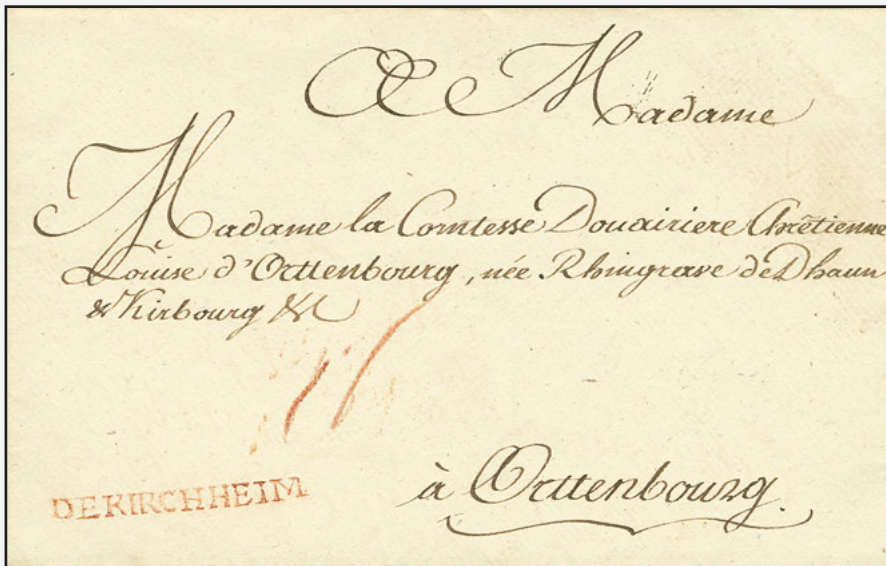 A Madame
Madame la Comtesse Douairiere Chrêtienne
Louise d'Orttenbourg, née Rhingrave de Dhaun
& Kirbourg &c
DE KIRCHHEIM
à Orttenbourg.